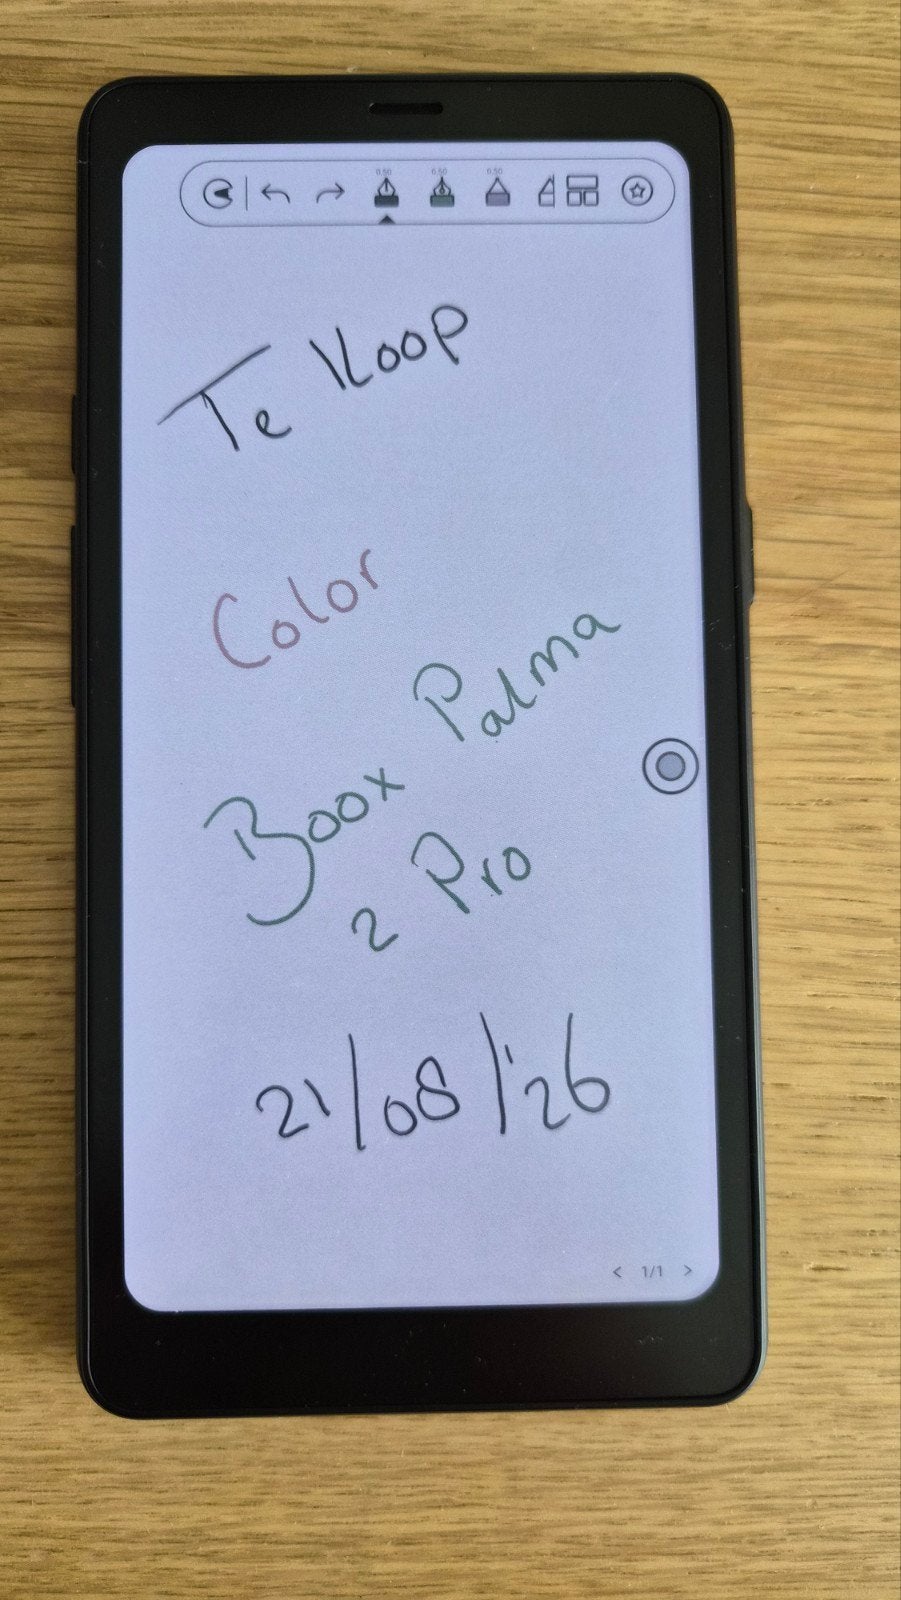 0.50 0.50 0.50
Te Koop
Color
Boox Palma
2 Pro
21/08/'26
< 1/1 >